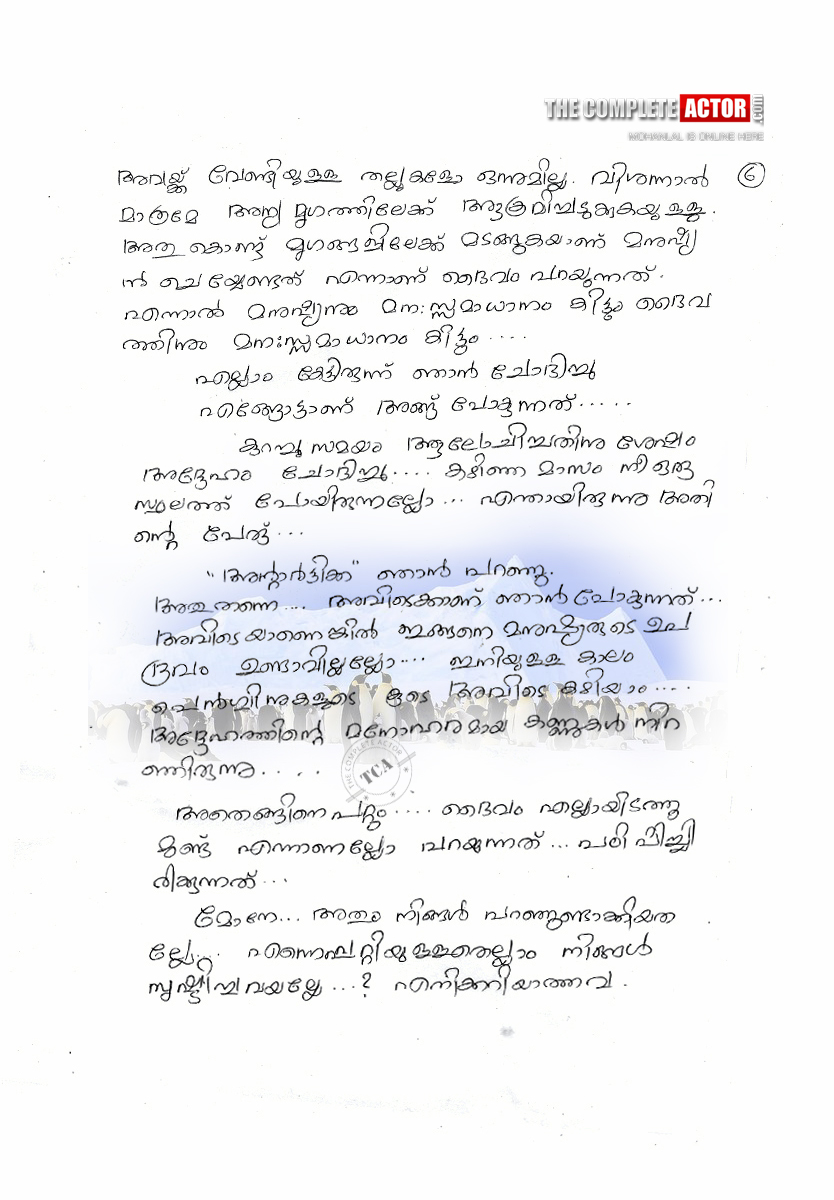 THE COMPLETE ACTOR .COM
MOHANLAL IS ONLINE HERE
അവയ്ക്ക് വേണ്ടിയുള്ള തല്ലുകളോ ഒന്നുമില്ല. വിശന്നാൽ ⑥
മാത്രമേ അന്യ മൃഗത്തിലേക്ക് അടുക്കുകയുള്ളൂ.
അതു കൊണ്ട് മൃഗങ്ങളിലേക്ക് മടങ്ങുകയാണ് മനുഷ്യ
ൻ ചെയ്യേണ്ടത് എന്നാണ് ദൈവം പറയുന്നത്.
എന്നാൽ മനുഷ്യനും മന:സ്സമാധാനം കിട്ടും ദൈവ
ത്തിനും മനഃസ്സമാധാനം കിട്ടും ....
എല്ലാം കേട്ടിരുന്ന് ഞാൻ ചോദിച്ചു
എങ്ങോട്ടാണ് അങ്ങ് പോകുന്നത്.....
കുറച്ചു സമയം ആലോചിച്ചതിനു ശേഷം
അദ്ദേഹം ചോദിച്ചു.... കഴിഞ്ഞ മാസം നീ ഒരു
സ്ഥലത്ത് പോയിരുന്നല്ലോ... എന്തായിരുന്നു അതി
ന്റെ പേരു്...
"അന്റാർട്ടിക്ക" ഞാൻ പറഞ്ഞു.
അതു തന്നെ.... അവിടെക്കാണ് ഞാൻ പോകുന്നത്...
അവിടെ യാണെങ്കിൽ ഇങ്ങനെ മനുഷ്യരുടെ ഉപ
ദ്രവം ഉണ്ടാവില്ലല്ലോ.... ഇനിയുള്ള കാലം
പെൻഗ്വിനുകളുടെ കൂടെ അവിടെ കഴിയാം....
അദ്ദേഹത്തിന്റെ മനോഹരമായ കണ്ണുകൾ നിറ
ഞ്ഞിരുന്നു....
THE COMPLETE ACTOR
TCA
അതെങ്ങിനെ പറ്റും.... ദൈവം എല്ലായിടത്തൂ
മുണ്ട് എന്നാണല്ലോ പറയുന്നത്... പഠിപ്പിച്ചി
രിക്കുന്നത്...
മോനേ... അതും നിങ്ങൾ പറഞ്ഞുണ്ടാക്കിയത
ല്ലേ... എന്നെപ്പറ്റിയുള്ളതെല്ലാം നിങ്ങൾ
സൃഷ്ടിച്ചവയല്ലേ...? എനിക്കറിയാത്തവ.